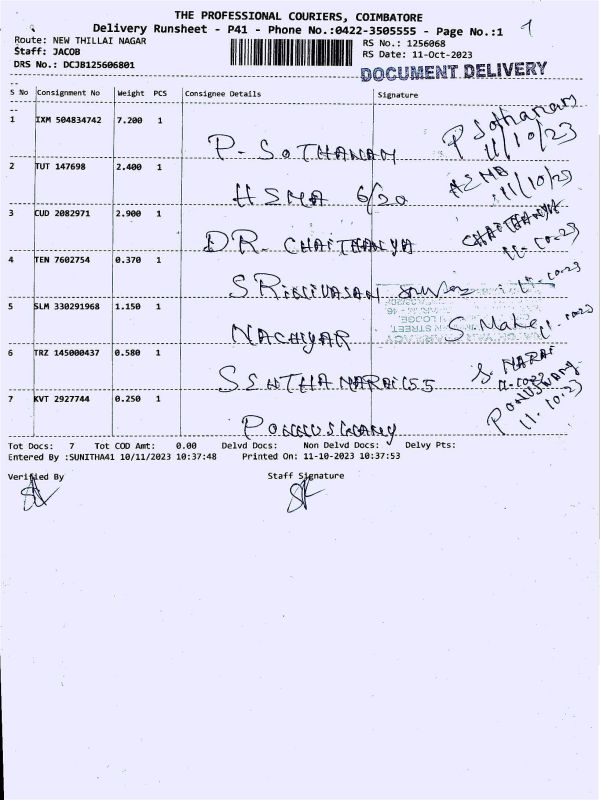 THE PROFESSIONAL COURIERS, COIMBATORE
Delivery Runsheet - P41 - Phone No.:0422-3505555 - Page No.:1
1
Route: NEW THILLAI NAGAR
RS No.: 1256068
Staff: JACOB
RS Date: 11-Oct-2023
DRS No.: DCJB125606801
DOCUMENT DELIVERY
S No Consignment No Weight PCS Consignee Details Signature
1 IXM 504834742 7.200 1
P. SOTHANAM P Sothanam
11/10/23
2 TUT 147698 2.400 1
HSMA 6/20 11/10/23
3 CUD 2082971 2.900 1
DR. CHAITHANYA CHAITHANYA
11-10-23
4 TEN 7602754 0.370 1
SRINIVASAN 11-10-23
5 SLM 330291968 1.150 1
NACHIYAR
6 TRZ 145000437 0.580 1
S.
7 KVT 2927744 0.250 1
PONNUSWAMY
11.10.23
Tot Docs: 7 Tot COD Amt: 0.00 Delvd Docs: Non Delvd Docs: Delvy Pts:
Entered By :SUNITHA41 10/11/2023 10:37:48 Printed On: 11-10-2023 10:37:53
Verified By Staff Signature